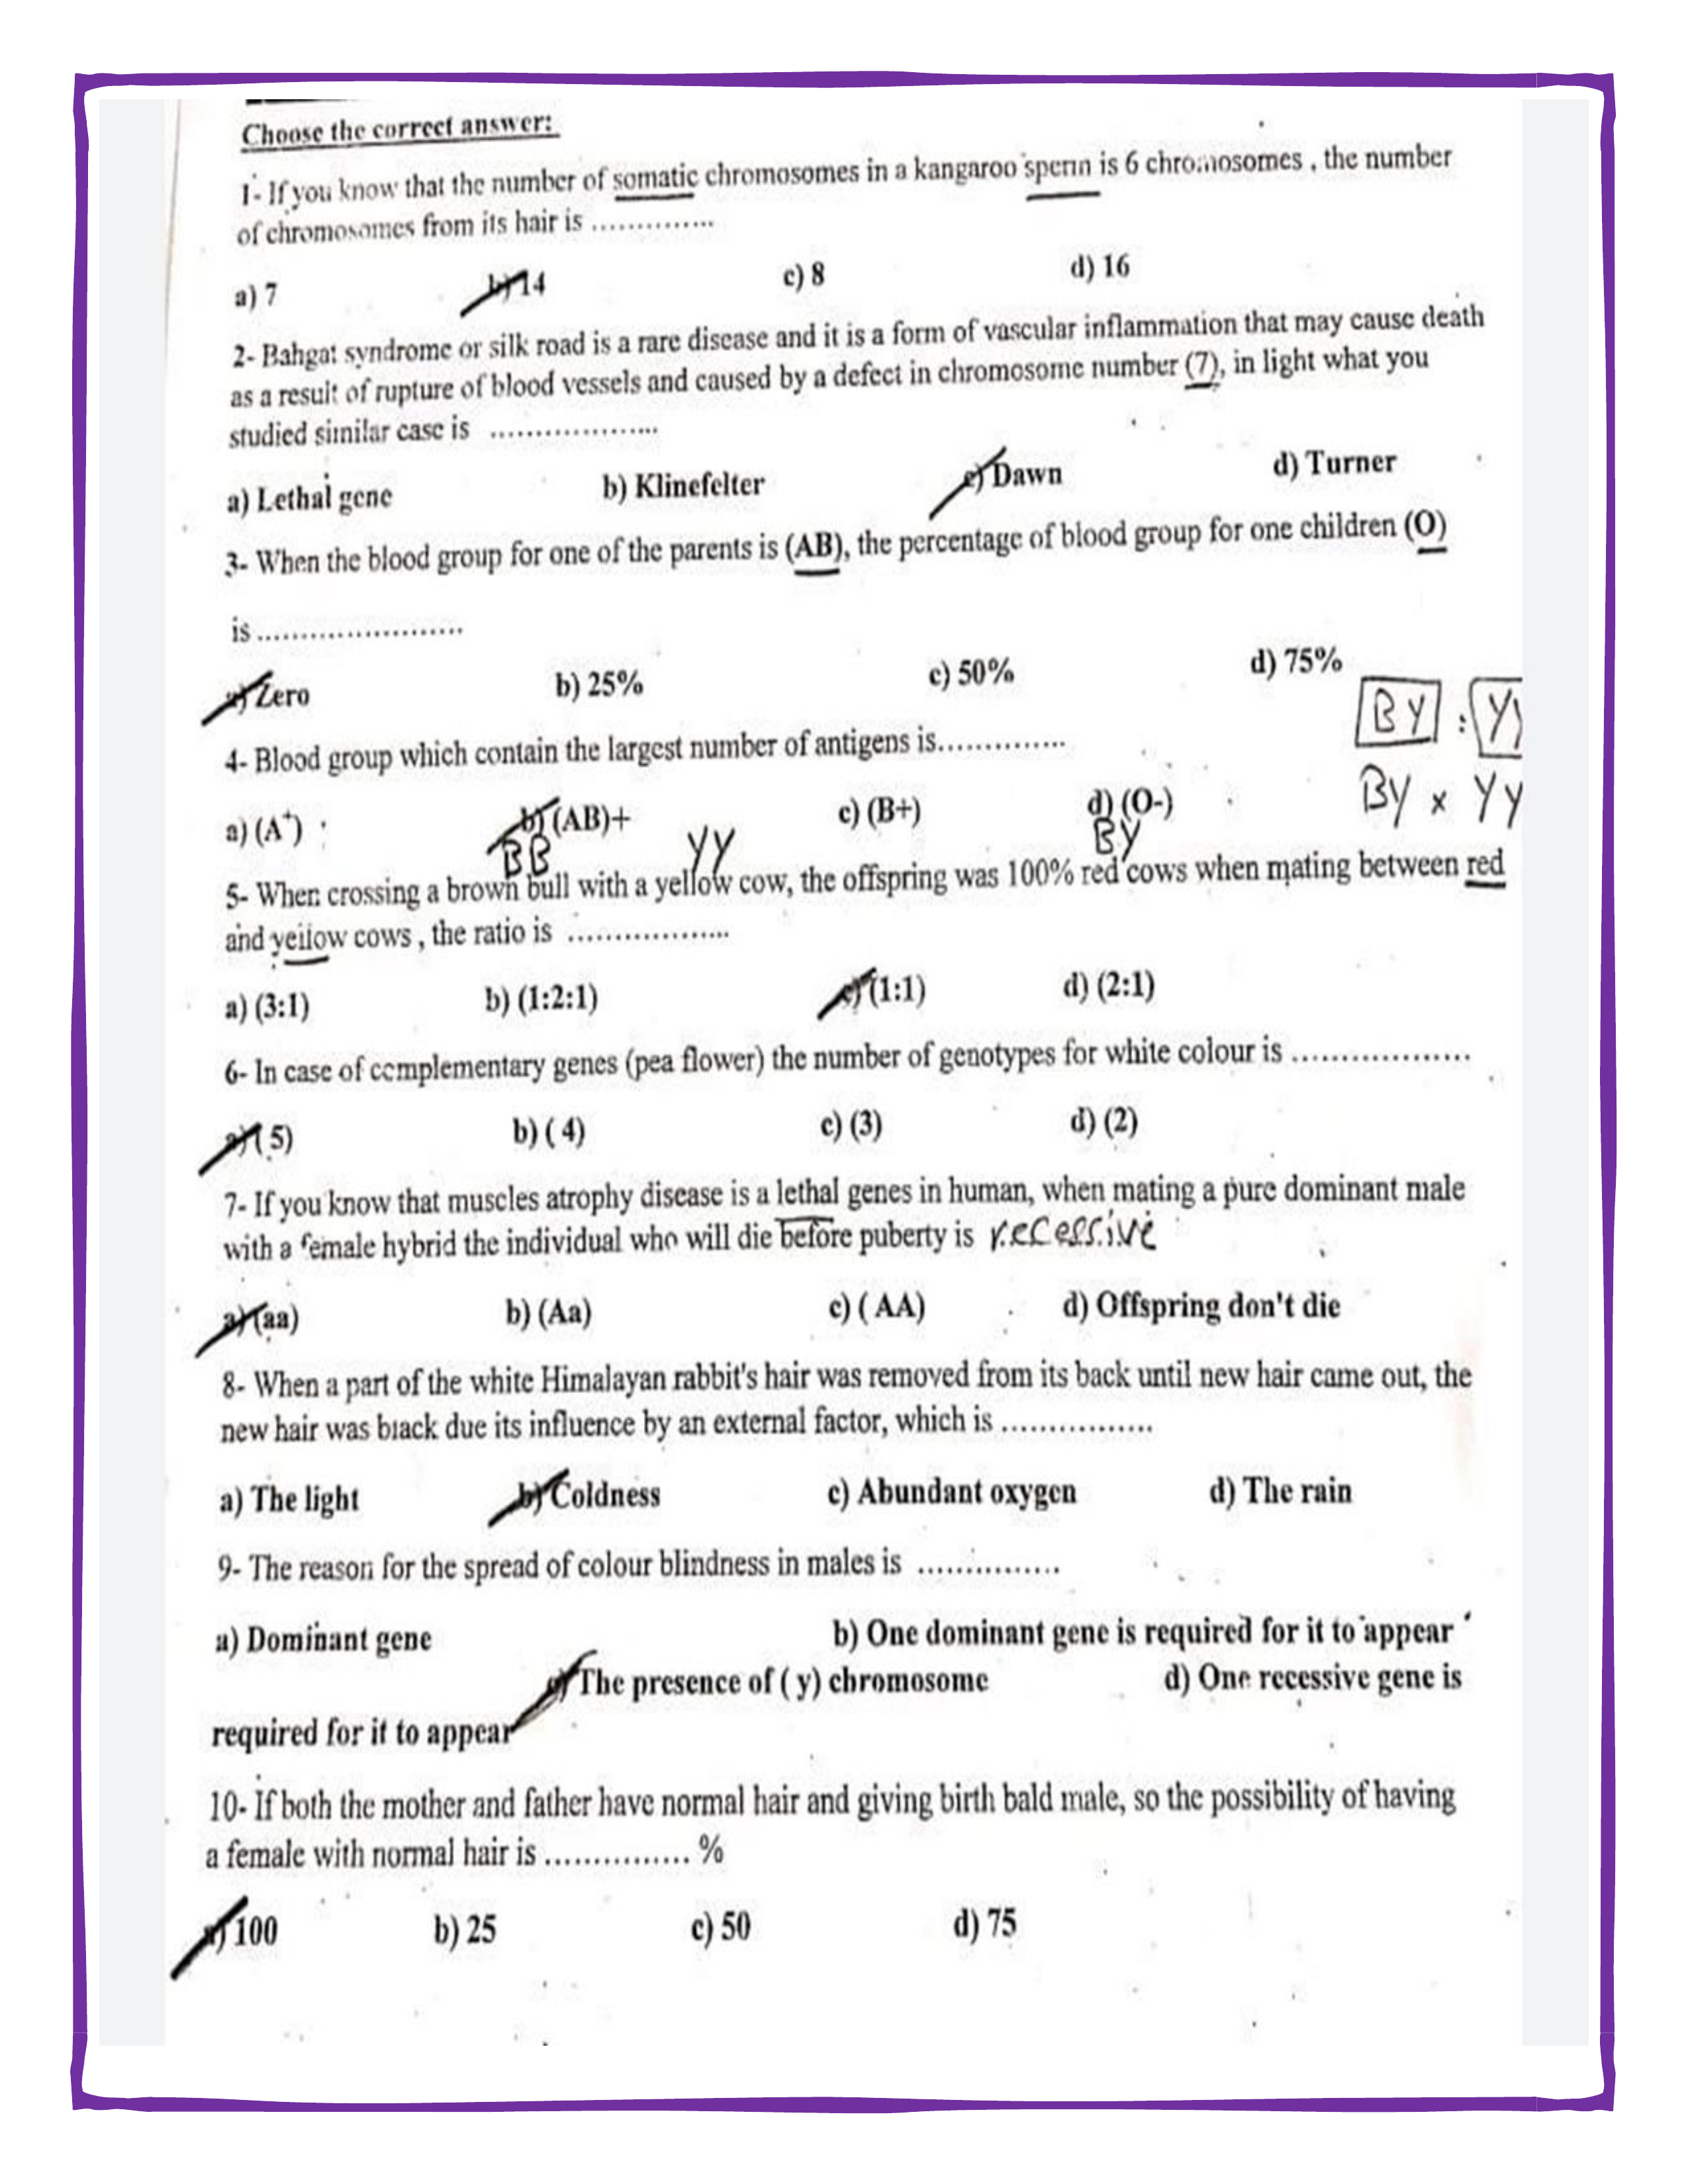 Choose the correct answer:
1- If you know that the number of somatic chromosomes in a kangaroo sperm is 6 chromosomes , the number
of chromosomes from its hair is ..............
a) 7 b) 14 c) 8 d) 16
2- Bahgat syndrome or silk road is a rare disease and it is a form of vascular inflammation that may cause death
as a result of rupture of blood vessels and caused by a defect in chromosome number (7), in light what you
studied similar case is ...................
a) Lethal gene b) Klinefelter c) Dawn d) Turner
3- When the blood group for one of the parents is (AB), the percentage of blood group for one children (O)
is .......................
a) Zero b) 25% c) 50% d) 75%
BY : Yy
4- Blood group which contain the largest number of antigens is..............
By x Yy
a) (A+) b) (AB)+ c) (B+) d) (O-)
BB YY BY
5- When crossing a brown bull with a yellow cow, the offspring was 100% red cows when mating between red
and yellow cows , the ratio is ..................
a) (3:1) b) (1:2:1) c) (1:1) d) (2:1)
6- In case of complementary genes (pea flower) the number of genotypes for white colour is ..................
a) ( 5) b) ( 4) c) (3) d) (2)
7- If you know that muscles atrophy disease is a lethal genes in human, when mating a pure dominant male
with a female hybrid the individual who will die before puberty is recessive
a) (aa) b) (Aa) c) ( AA) d) Offspring don't die
8- When a part of the white Himalayan rabbit's hair was removed from its back until new hair came out, the
new hair was black due its influence by an external factor, which is ................
a) The light b) Coldness c) Abundant oxygen d) The rain
9- The reason for the spread of colour blindness in males is ...............
a) Dominant gene b) One dominant gene is required for it to appear
c) The presence of ( y) chromosome d) One recessive gene is
required for it to appear
10- If both the mother and father have normal hair and giving birth bald male, so the possibility of having
a female with normal hair is ............... %
a) 100 b) 25 c) 50 d) 75